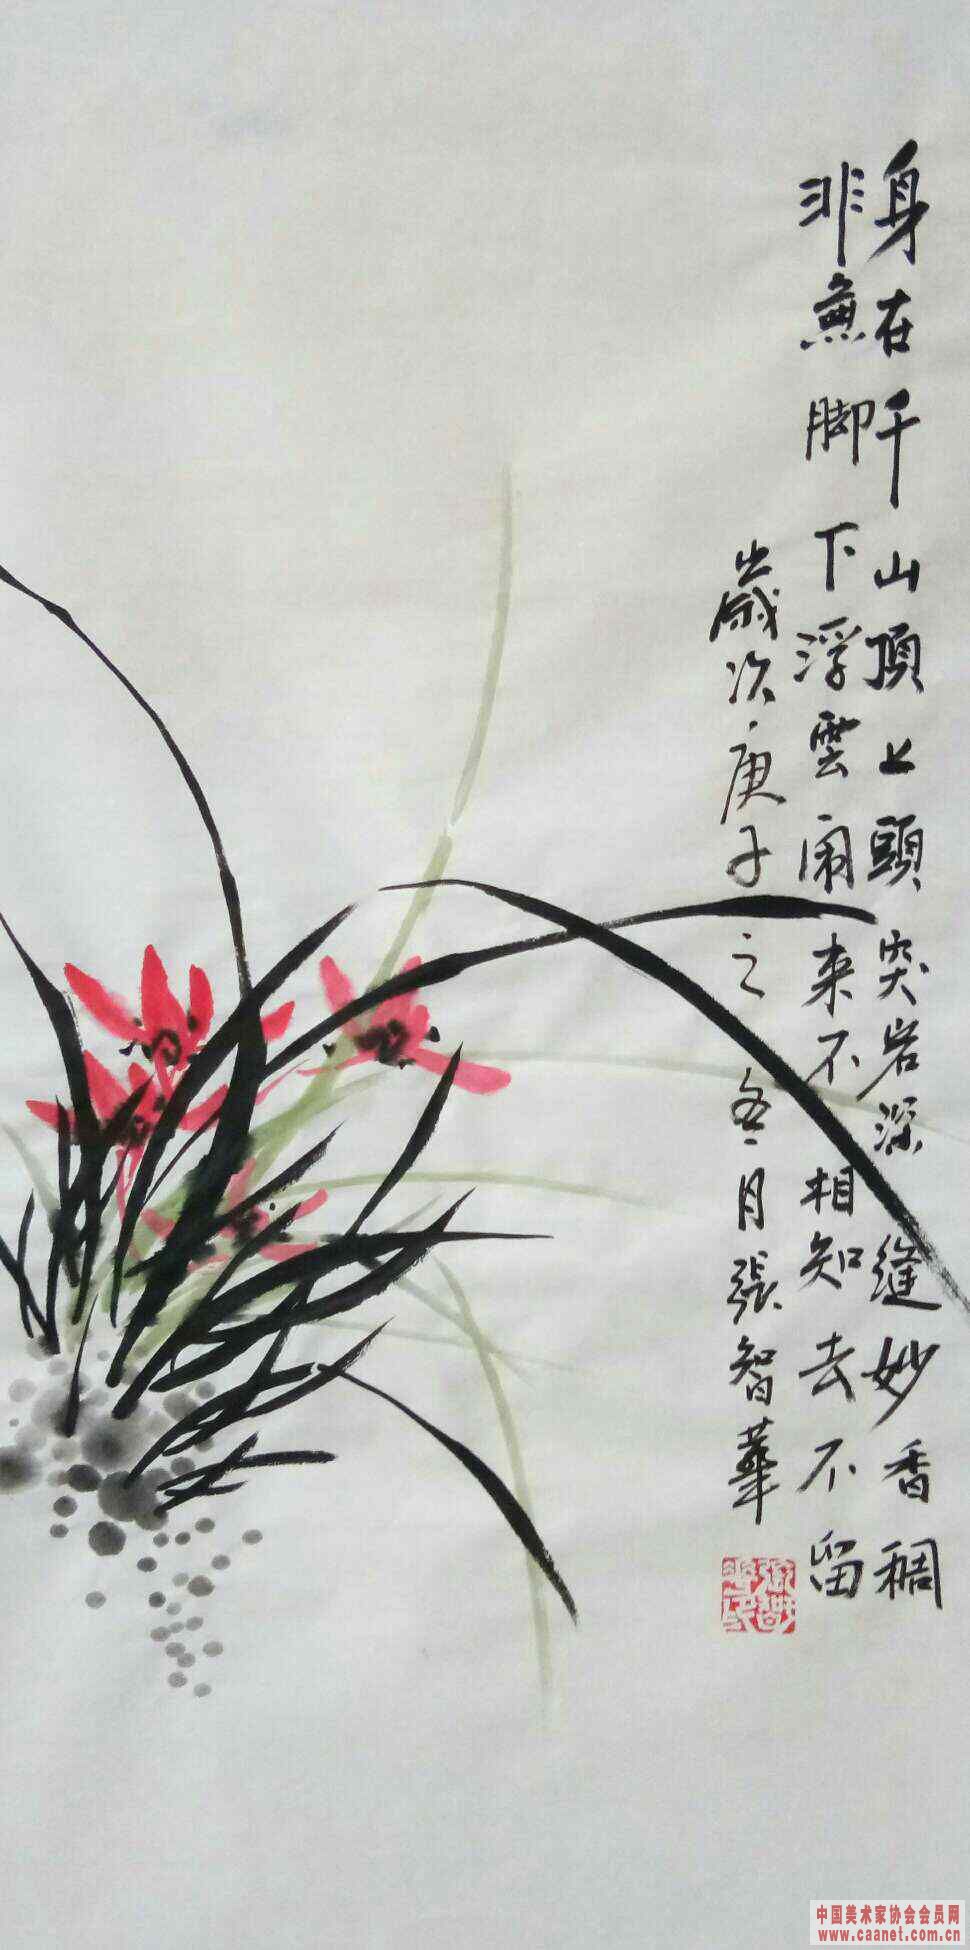 身在千山頂上頭突岩深縫妙香稠
非魚脚下浮雲闹来不相知去不留
歲次庚子之冬月張智華
中国美术家协会会员网
www.caanet.com.cn